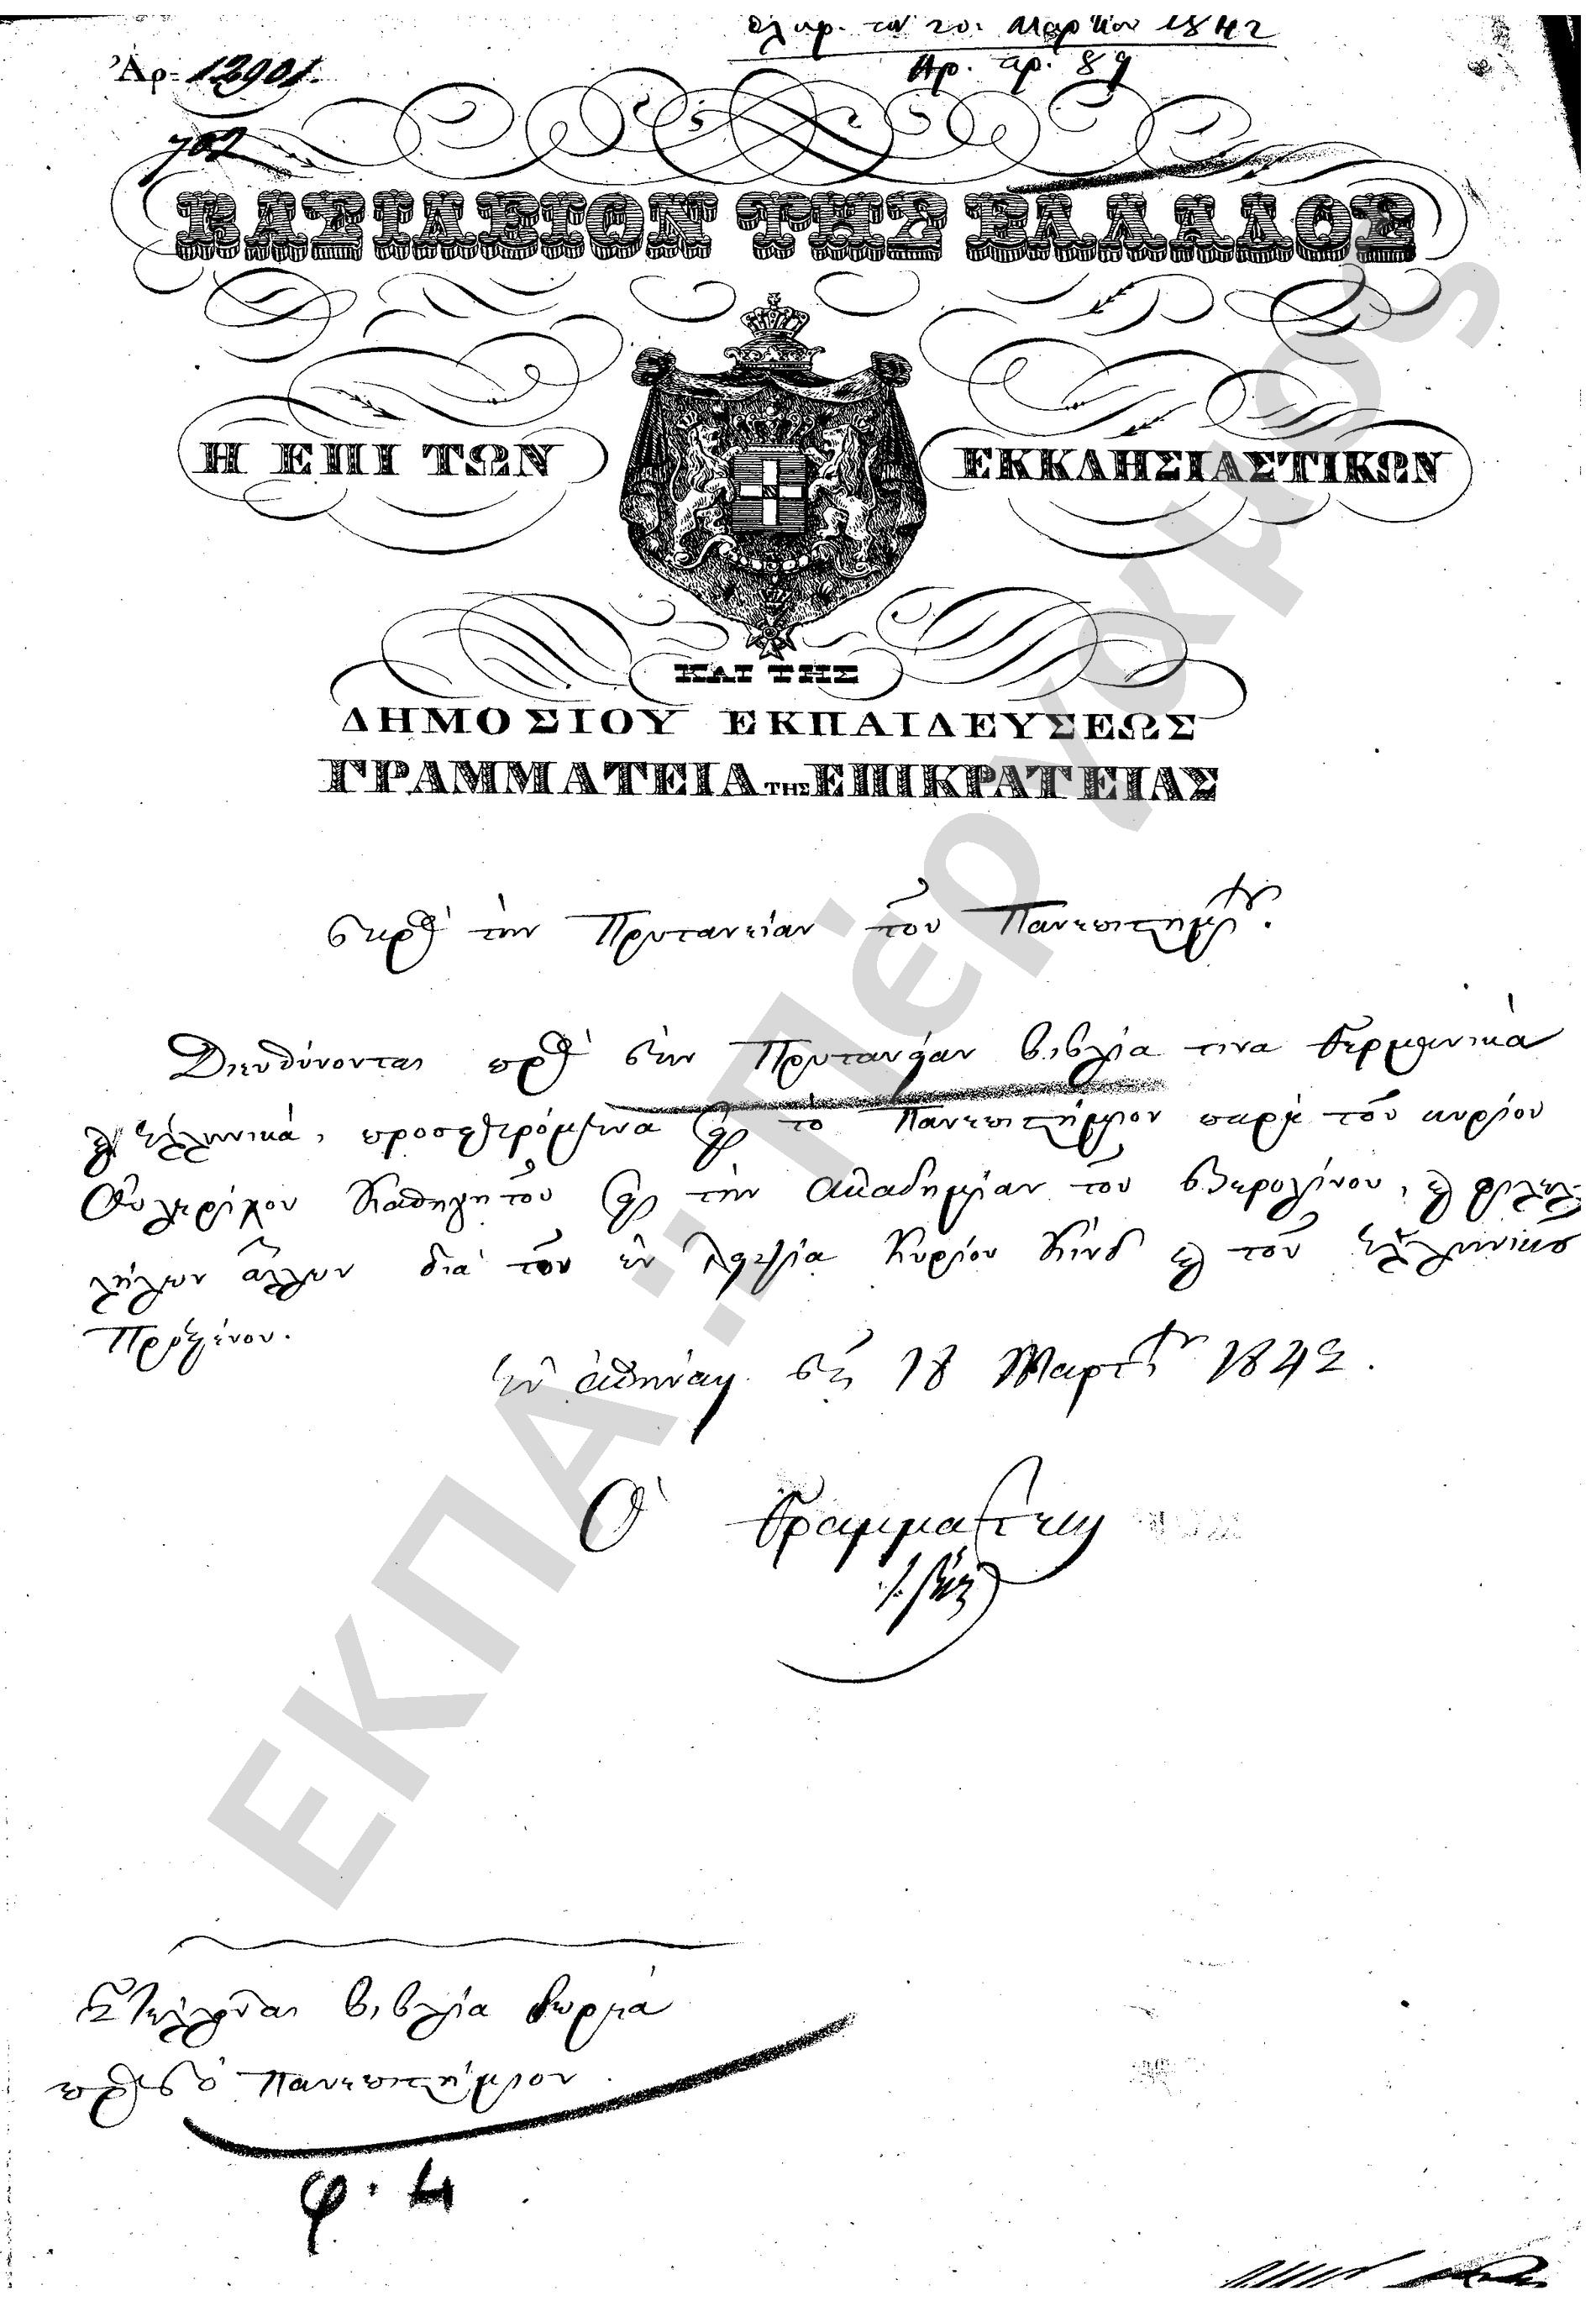 παρ. τὴν 20. Μαρτίου 1842
Ἀρ. πρ. 89
Ἀρ. 12901.
702
ΒΑΣΙΛΕΙΟΝ ΤΗΣ ΕΛΛΑΔΟΣ
Η ΕΠΙ ΤΩΝ ΕΚΚΛΗΣΙΑΣΤΙΚΩΝ
ΚΑΙ ΤΗΣ
ΔΗΜΟΣΙΟΥ ΕΚΠΑΙΔΕΥΣΕΩΣ
ΓΡΑΜΜΑΤΕΙΑ ΤΗΣ ΕΠΙΚΡΑΤΕΙΑΣ
Πρὸς τὴν Πρυτανείαν τοῦ Πανεπιστημίου.
Διευθύνονται πρὸς τὴν Πρυτανείαν βιβλία τινα Γερμανικὰ
καὶ Ἑλληνικὰ, προσφερόμενα εἰς τὸ Πανεπιστήμιον παρὰ τοῦ κυρίου
Οὐλερίχου Καθηγητοῦ εἰς τὴν Ἀκαδημίαν τοῦ Βερολίνου, καὶ φιλελ-
λήνων ἄλλων διὰ τοῦ ἐν Λειψία Κυρίου Κὶνδ καὶ τοῦ Ἑλληνικοῦ
Προξένου.
Ἐν Ἀθήναις τῇ 18 Μαρτίου 1842.
Ὁ Γραμματεὺς
Στέλλονται βιβλία δωρεὰ
πρὸς τὸ Πανεπιστήμιον.
φ. 4
ΕΚΠΑ: Πέργαμος